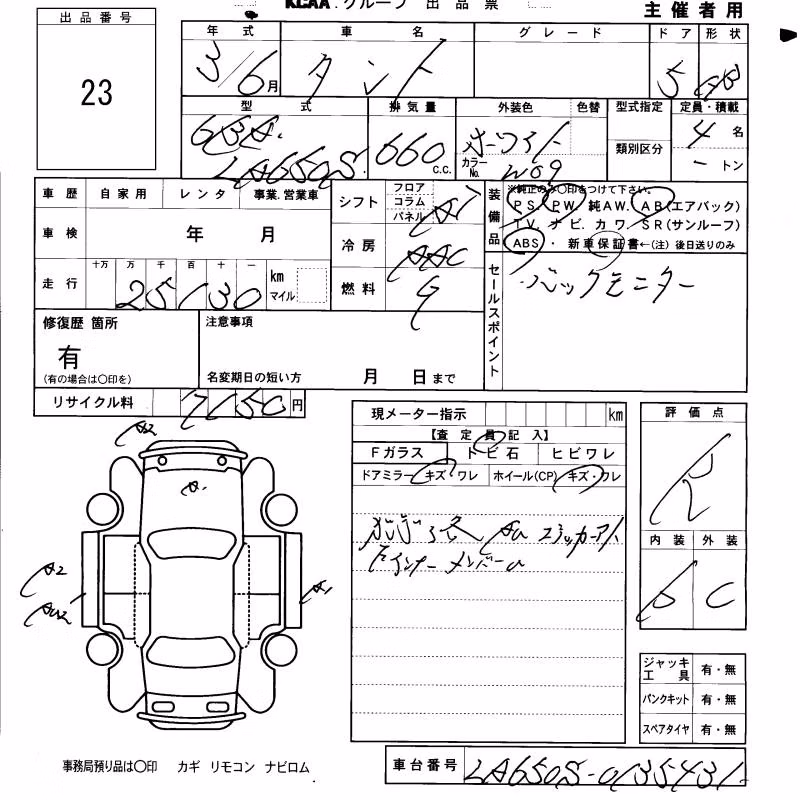 KCAA.グループ 出品票
主催者用
出品番号
23
年式 車名 グレード ドア 形状
3/6月 タント 5
型式 排気量 外装色 色替 型式指定 定員・積載
6BA. 660 c.c. ホワイト 類別区分 4名
LA650S カラーNo. W09 ートン
車歴 自家用 レンタ 事業.営業車
車検 年 月
走行 十万 万 千 百 十 一 km マイル
25130
シフト フロア コラム パネル AT
冷房 AAC
燃料 G
装備品
※純正のみ〇印をつけて下さい。
PS. PW. 純AW. AB(エアバック)
TV. ナビ. カワ. SR(サンルーフ)
ABS・ 新車保証書←(注) 後日送りのみ
セールスポイント
バックモニター
修復歴 箇所
有
(有の場合は〇印を)
注意事項
名変期日の短い方 月 日まで
リサイクル料 7150円
A2
A.
A2
AU2
A1
現メーター指示 km
【査定員記入】
Fガラス トビ石 ヒビワレ
ドアミラー キズ・ワレ ホイール(CP) キズ・ワレ
評価点
R
内装 外装
B C
ジャッキ工具 有・無
パンクキット 有・無
スペアタイヤ 有・無
事務局預り品は〇印 カギ リモコン ナビロム
車台番号 LA650S-0135431.